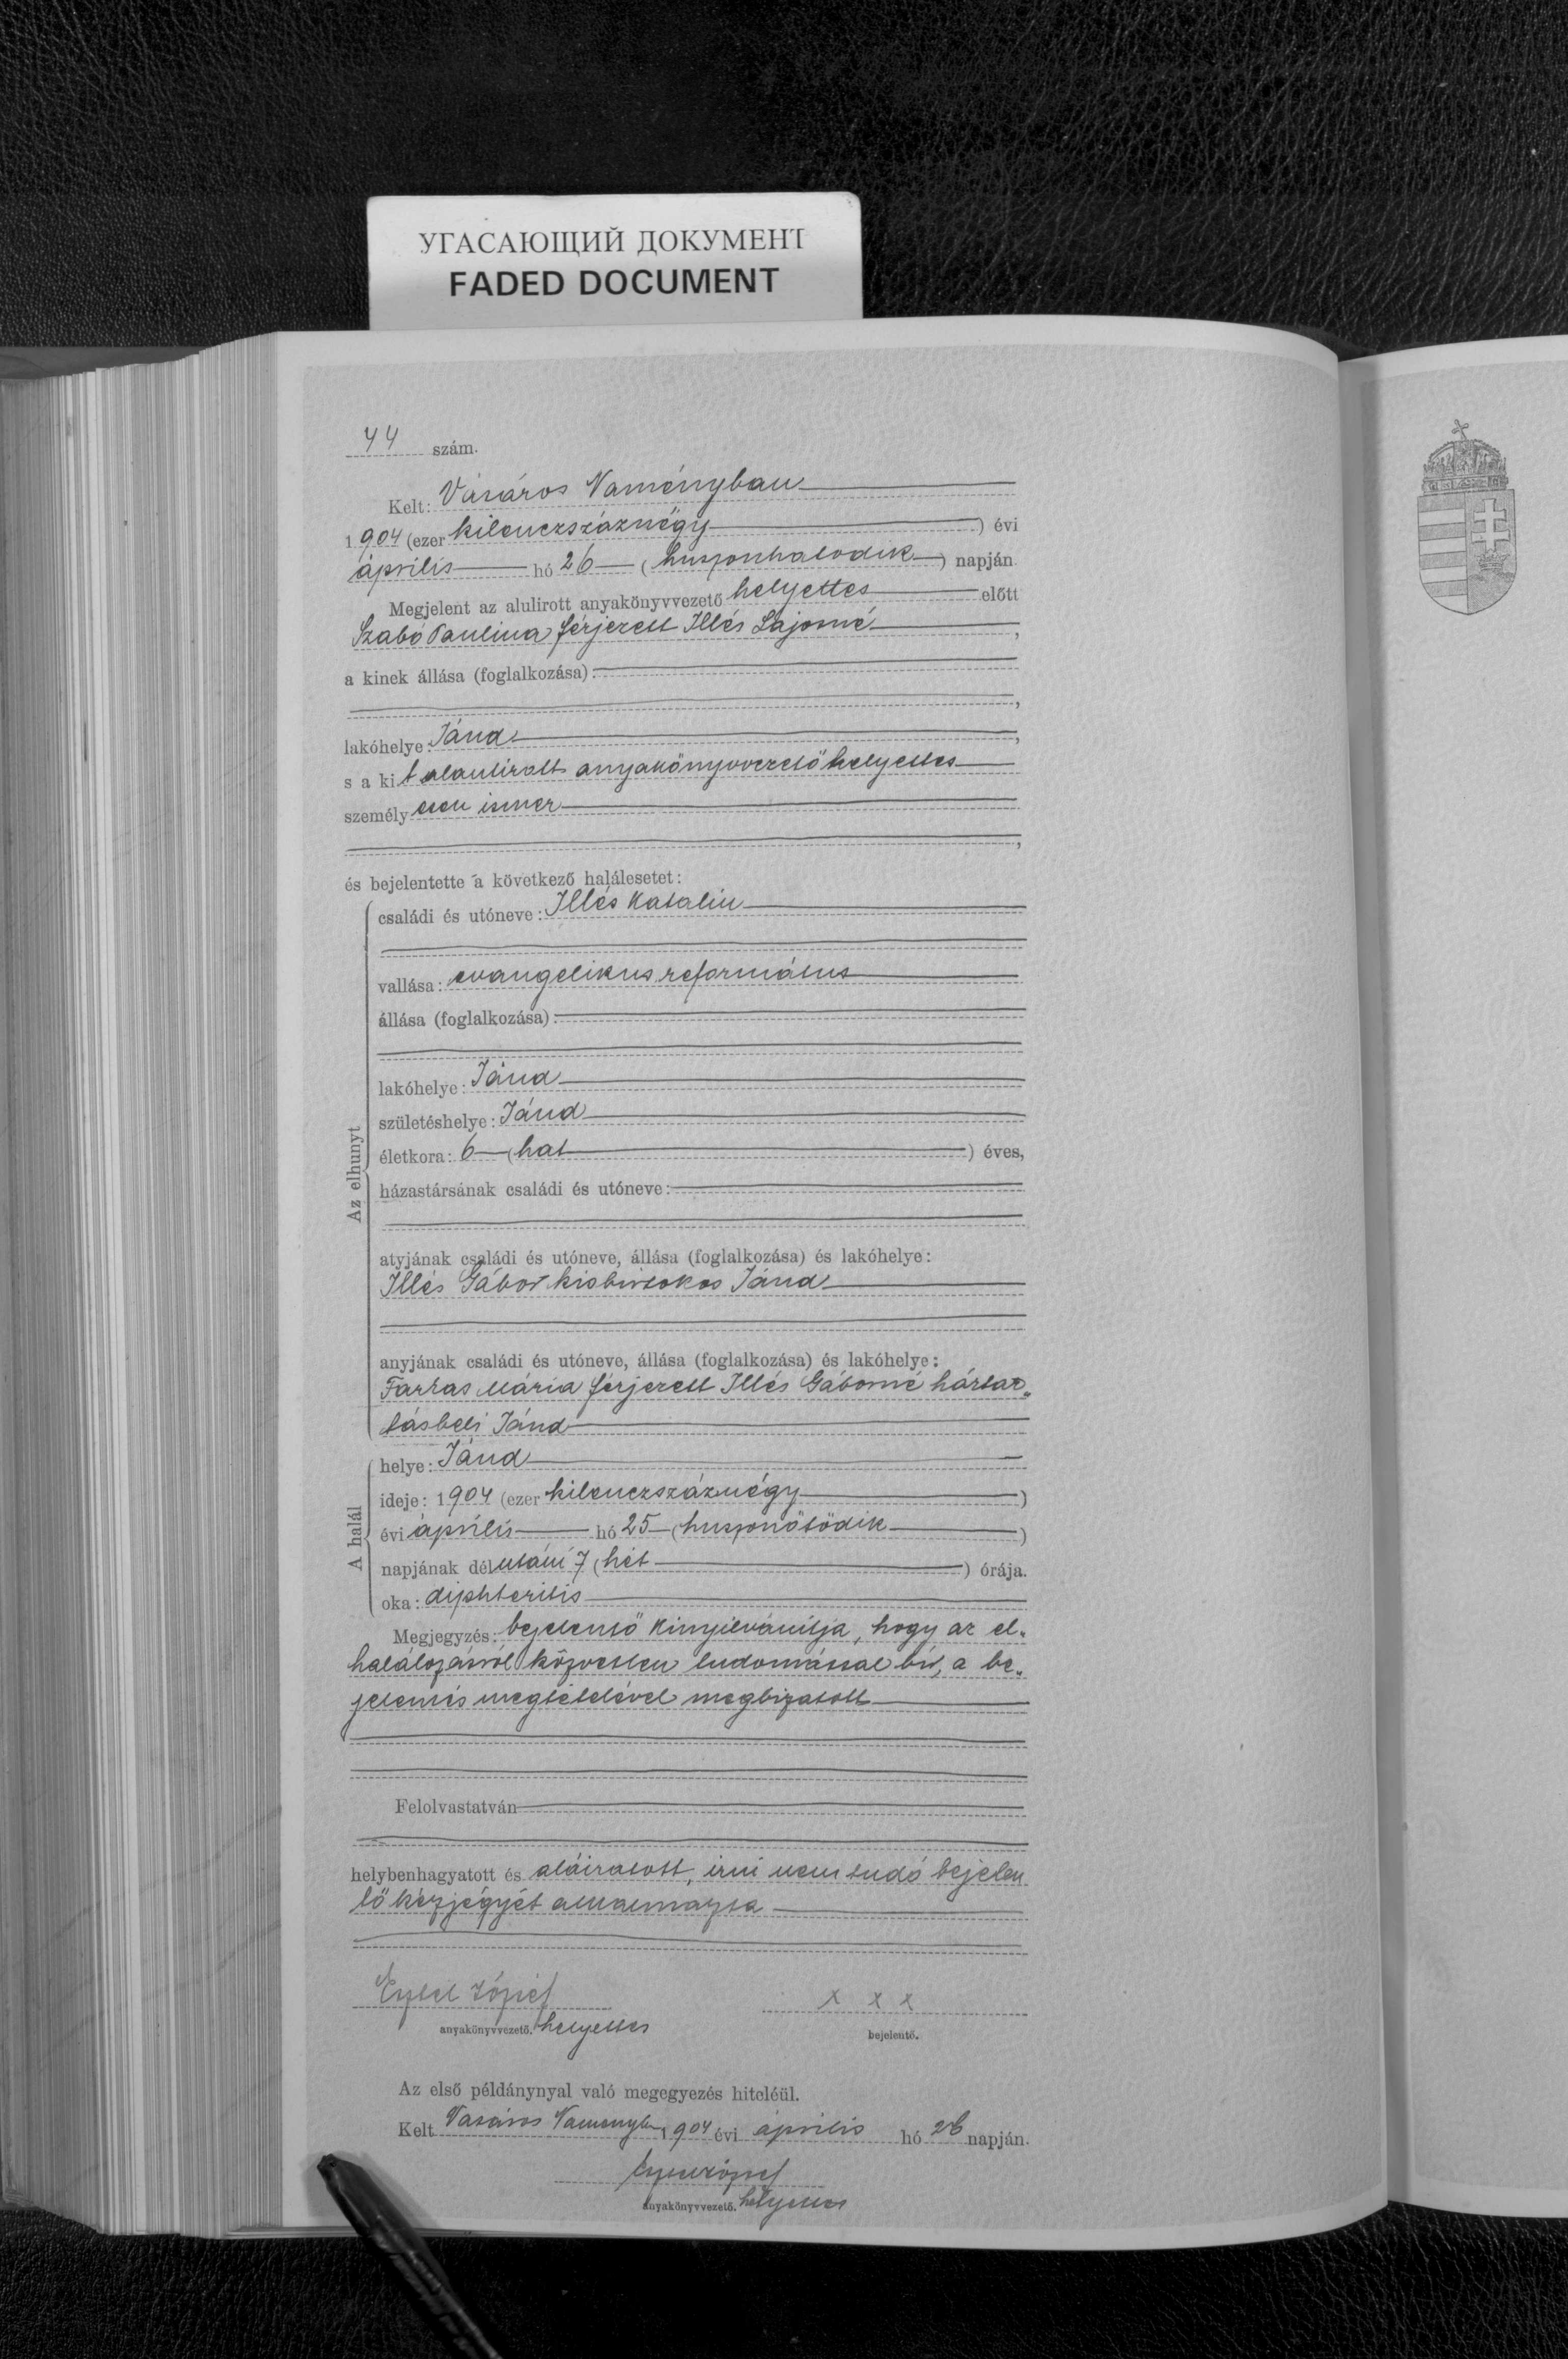 УГАСАЮЩИЙ ДОКУМЕНТ
FADED DOCUMENT
44 szám.
Kelt: Vásáros Naményban
1904 (ezer kilenczszáznégy) évi
április hó 26 (huszonhatodik) napján.
Megjelent az alulirott anyakönyvvezető helyettes előtt
Szabó Paulina férjezett Illés Lajosné,
a kinek állása (foglalkozása):
,
lakóhelye: Jánd,
s a kit alantirott anyakönyvvezető helyettes
személyesen ismer
,
és bejelentette a következő halálesetet:
Az elhunyt
családi és utóneve: Illés Katalin
vallása: evangelikus református
állása (foglalkozása):
lakóhelye: Jánd
születéshelye: Jánd
életkora: 6 (hat) éves,
házastársának családi és utóneve:
atyjának családi és utóneve, állása (foglalkozása) és lakóhelye:
Illés Gábor kisbirtokos Jánd
anyjának családi és utóneve, állása (foglalkozása) és lakóhelye:
Farkas Mária férjezett Illés Gáborné háztar„
tásbeli Jánd
A halál
helye: Jánd
ideje: 1904 (ezer kilenczszáznégy)
évi április hó 25 (huszonötödik)
napjának délutáni 7 (hét) órája.
oka: diphteritis
Megjegyzés: bejelentő kinyilvánítja, hogy az el„
halálozásról közvetlen tudomással bír, a be„
jelentés megtételével megbizatott
Felolvastatván
helybenhagyatott és aláiratott, irni nem tudó bejelen
tő kézjegyét alkalmazta
József
anyakönyvvezető. helyettes
x x x
bejelentő.
Az első példánynyal való megegyezés hiteléül.
Kelt Vásáros Naményb 1904 évi április hó 26 napján.
József
anyakönyvvezető. helyettes